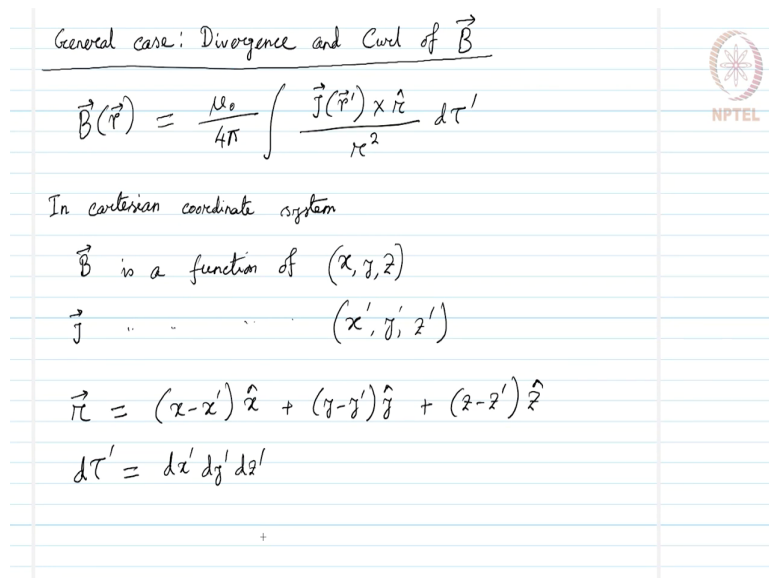 General case: Divergence and Curl of B⃗
B⃗(r⃗) = μ₀/4π ∫ J⃗(r⃗') × 𝓇̂ / 𝓇² dτ'
NPTEL
In cartesian coordinate system
B⃗ is a function of (x, y, z)
J⃗ " " " " (x', y', z')
𝓇⃗ = (x-x') x̂ + (y-y') ŷ + (z-z') ẑ
dτ' = dx' dy' dz'